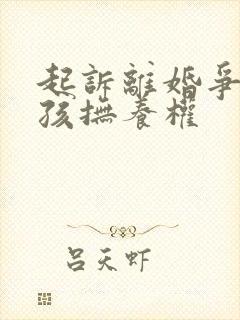 起訴離婚爭
孩撫養權
吕天虾